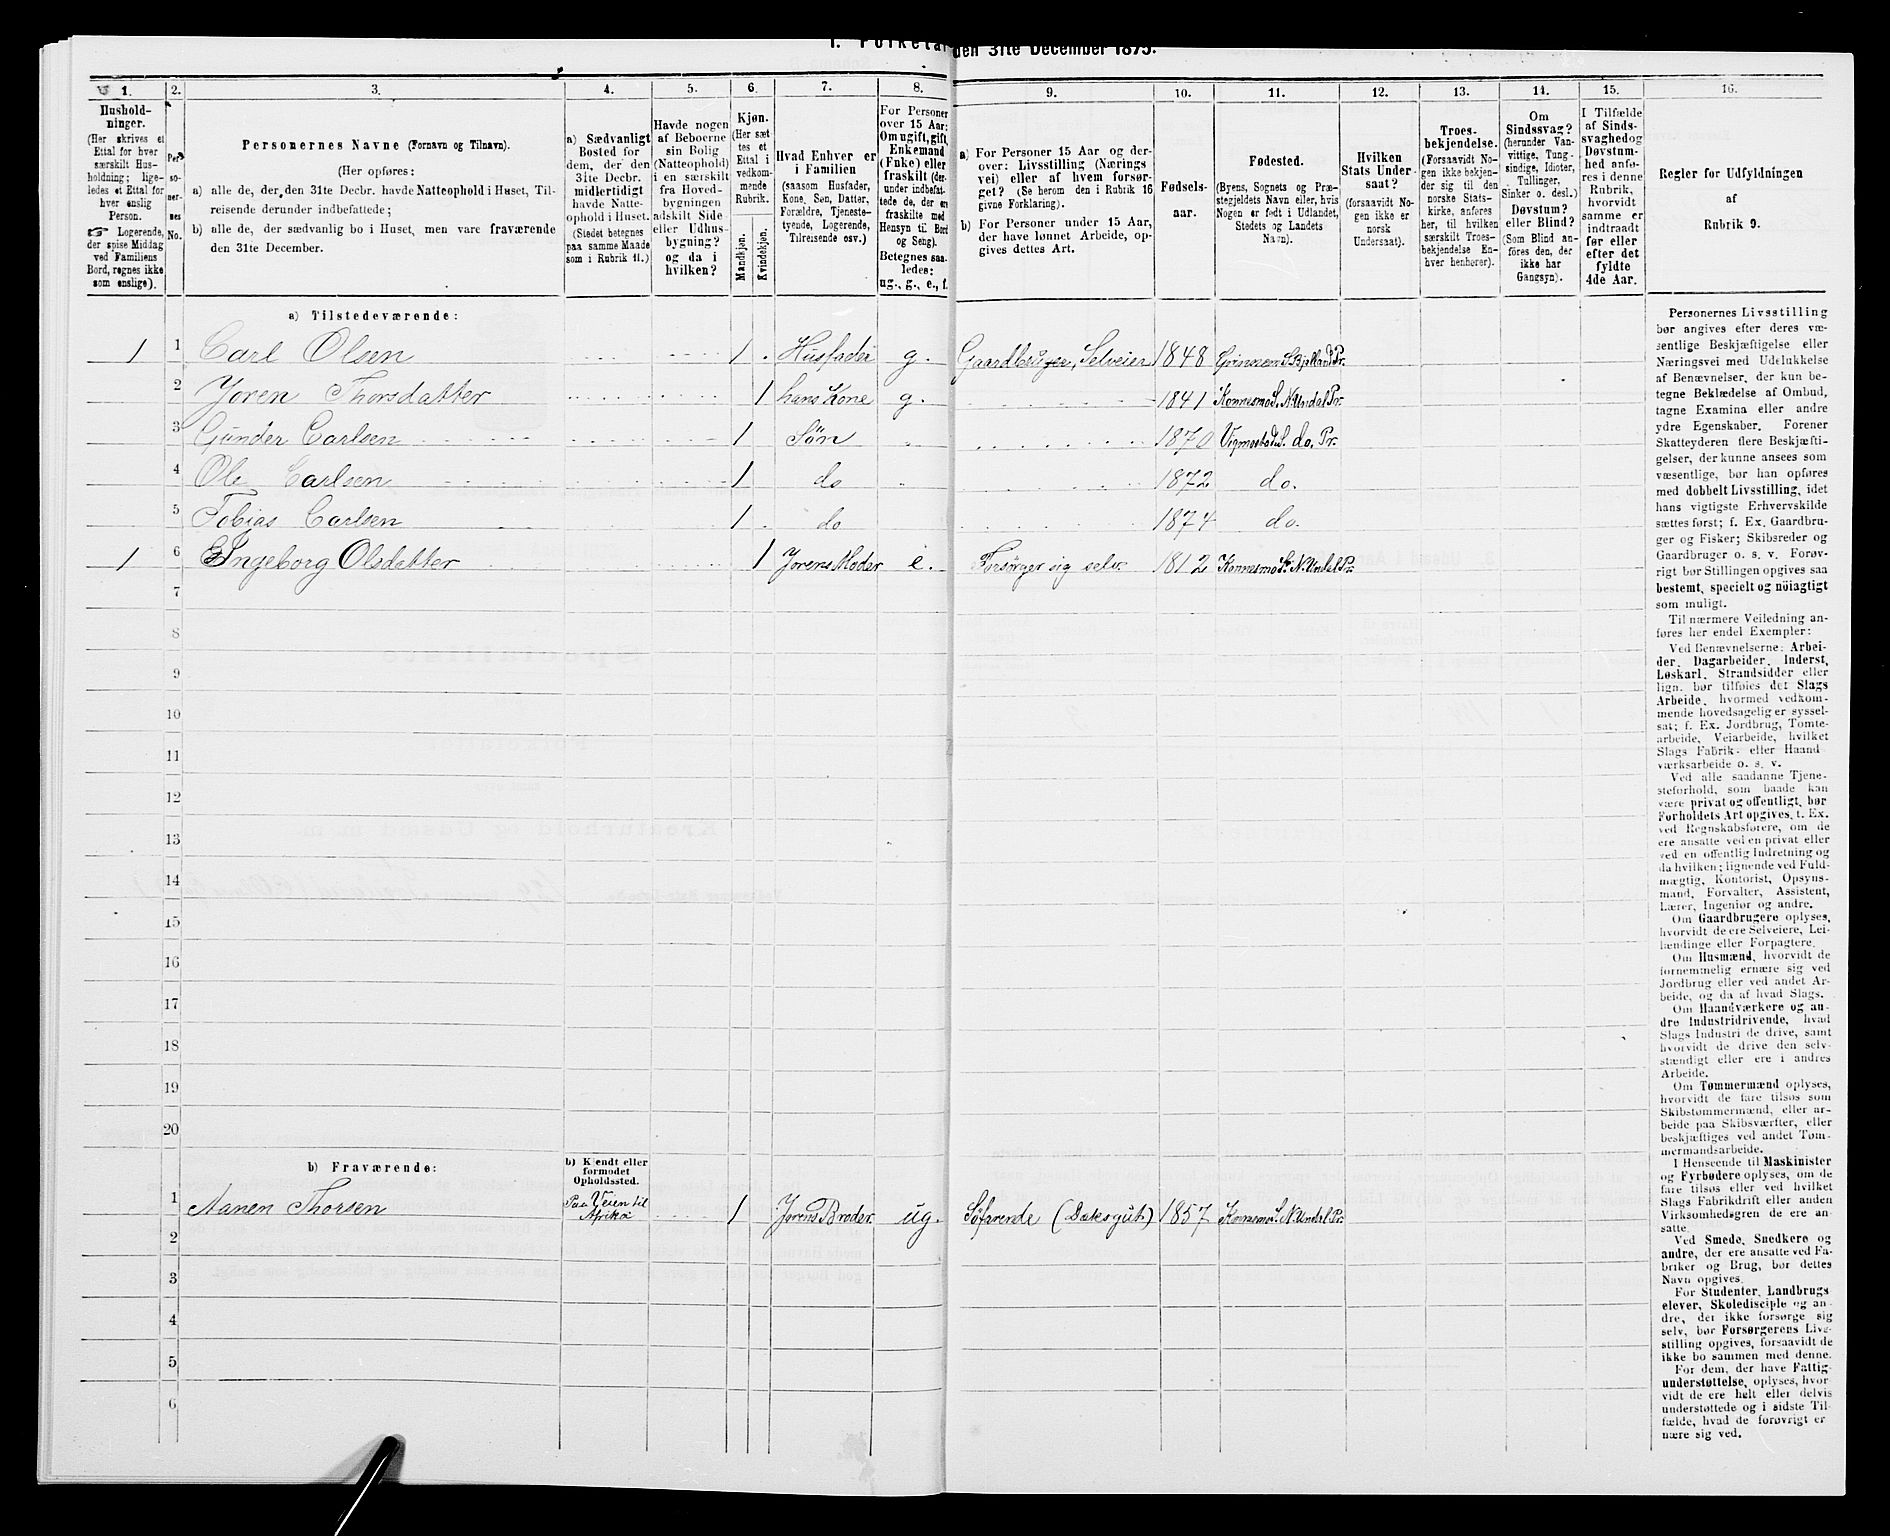 den 31te December 1875.
1.
2.
3.
4.
5.
6.
7.
8.
9.
10.
11.
12.
13.
14.
15.
16.
Hushold-
ninger.
(Her skrives et
Ettal for hver
særskilt Hus-
holdning; lige-
ledes et Ettal for
hver enslig
Person.
☞ Logerende,
der spise Middag
ved Familiens
Bord, regnes ikke
som enslige).
Per
soner-
nes
No.
Personernes Navne (Fornavn og Tilnavn).
(Her opføres:
a) alle de, der den 31te Decbr. havde Natteophold i Huset, Til-
reisende derunder indbefattede;
b) alle de, der sædvanlig bo i Huset, men vare fraværende
den 31te December.
a) Sædvanligt
Bosted for
dem, der den
31te Decbr.
midlertidigt
havde Natte-
ophold i Huset.
(Stedet betegnes
paa samme Maade
som i Rubrik 11.)
Havde nogen
af Beboerne
sin Bolig
(Natteophold)
i en særskilt
fra Hoved-
bygningen
adskilt Side-
eller Udhus-
bygning?
og da i
hvilken?
Kjøn.
(Her sæt
tes et
Ettal i
vedkom-
mende
Rubrik.
Mandkjøn.
Kvindekjøn.
Hvad Enhver er
i Familien
(saasom Husfader,
Kone, Søn, Datter,
Forældre, Tjeneste-
tyende, Logerende,
Tilreisende osv.)
For Personer
over 15 Aar:
Om ugift, gift,
Enkemand
(Enke) eller
fraskilt (der-
under indbefat-
tede de, der ere
fraskilte med
Hensyn til Bord
og Seng).
Betegnes saa-
ledes:
ug., g., e., f.
a) For Personer 15 Aar og der-
over: Livsstilling (Nærings
vei) eller af hvem forsør-
get? (Se herom den i Rubrik 16
givne Forklaring).
b) For Personer under 15 Aar,
der have lønnet Arbeide, op-
gives dettes Art.
Fødsels-
aar.
Fødested.
(Byens, Sognets og Præ-
stegjeldets Navn eller, hvis
Nogen er født i Udlandet,
Stedets og Landets
Navn).
Hvilken
Stats Under-
saat?
(forsaavidt No-
gen ikke er
norsk
Undersaat).
Troes-
bekjendelse.
(Forsaavidt No-
gen ikke bekjen-
der sig til den
norske Stats-
kirke, anføres
her, til hvilken
særskilt Troes-
bekjendelse En-
hver henhører).
Om
Sindssvag?
(herunder Van-
vittige, Tung-
sindige, Idioter,
Tullinger,
Sinker o. desl.)
Døvstum?
eller Blind?
(Som Blind an-
føres den, der
ikke har
Gangsyn).
I Tilfælde
af Sinds-
svaghed og
Døvstum-
hed anfø-
res i denne
Rubrik,
hvorvidt
samme er
indtraadt
før eller
efter det
fyldte
4de Aar.
Regler for Udfyldningen
af
Rubrik 9.
a) Tilstedeværende:
1 1 Carl Olsen 1 Husfader g. Gaardbruger, Selveier 1848 S. Bjelland Pr.
2 Joren Thorsdatter 1 hans Kone g. 1841 Konnesmo S. N. Undal Pr.
3 Gunder Carlsen 1 Søn 1870 Vigmostad S. do. Pr.
4 Ole Carlsen 1 do 1872 do.
5 Tobias Carlsen 1 do 1874 do.
1 6 Ingeborg Olsdatter 1 Jorens Moder e. Forsørger sig selv. 1812 Konnesmo S. N. Undal Pr.
7
8
9
10
11
12
13
14
15
16
17
18
19
20
b) Fraværende:
b) Kjendt eller
formodet
Opholdssted.
1 Aanen Thorsen Paa Veien til
Afrika 1 Jorens Broder ug. Söfarende (Dæksgut) 1857 Konnesmo S. N. Undal Pr.
2
3
4
5
6
Personernes Livsstilling
bør angives efter deres væ-
sentlige Beskjæftigelse eller
Næringsvei med Udelukkelse
af Benævnelser, der kun be-
tegne Beklædelse af Ombud,
tagne Examina eller andre
ydre Egenskaber. Forener
Skatteyderen flere Beskjæfti-
gelser, der kunne ansees som
væsentlige, bør han opføres
med dobbelt Livsstilling, idet
hans vigtigste Erhvervskilde
sættes først; f. Ex. Gaardbru-
ger og Fisker; Skibsreder og
Gaardbruger o. s. v. Forøv-
rigt bør Stillingen opgives saa
bestemt, specielt og nöiagtigt
som muligt.
Til nærmere Veiledning an-
føres her endel Exempler:
Ved Benævnelserne: Arbei-
der, Dagarbeider, Inderst,
Løskarl, Strandsidder eller
lign. bør tilføies det Slags
Arbeide, hvormed vedkom-
mende hovedsagelig er syssel-
sat; f. Ex. Jordbrug, Tomte-
arbeide, Veiarbeide, hvilket
Slags Fabrik- eller Haand-
værksarbeide o. s. v.
Ved alle saadanne Tjene-
steforhold, som baade kan
være privat og offentligt, bør
Forholdets Art opgives, f. Ex.
ved Regnskabsførere, om de
ere ansatte ved en privat eller
ved en offentlig Indretning og
da hvilken; lignende ved Fuld-
mægtig, Kontorist, Opsyns-
mand, Forvalter, Assistent,
Lærer, Ingeniør og andre.
Om Gaardbrugere oplyses,
hvorvidt de ere Selveiere, Lei-
lændinge eller Forpagtere.
Om Husmænd, hvorvidt de
fornemmelig ernære sig ved
Jordbrug eller ved andet Ar-
beide, og da af hvad Slags.
Om Haandværkere og an-
dre Industridrivende, hvad
Slags Industri de drive, samt
hvorvidt de drive den selv-
stændigt eller ere i andres
Arbeide.
Om Tømmermænd oplyses,
hvorvidt de fare tilsøs som
Skibstømmermænd, eller ar-
beide paa Skibsværfter, eller
beskjæftiges ved andet Tøm-
mermandsarbeide.
I Henseende til Maskinister
og Fyrbødere oplyses, om de
fare tilsøs eller ved hvilket
Slags Fabrikdrift eller anden
Virksomhedsgren de ere an-
satte.
Ved Smede, Snedkere og
andre, der ere ansatte ved Fa-
briker og Brug, bør dettes
Navn opgives.
For Studenter, Landbrugs
elever, Skoledisciple og an-
dre, der ikke forsørge sig
selv, bør Forsørgerens Livs-
stilling opgives, forsaavidt de
ikke bo sammen med denne.
For dem, der have Fattig-
understøttelse, oplyses, hvor-
vidt de ere helt eller delvis
understøttede og i sidste Til-
fælde, hvad de forøvrigt er
nære sig ved.